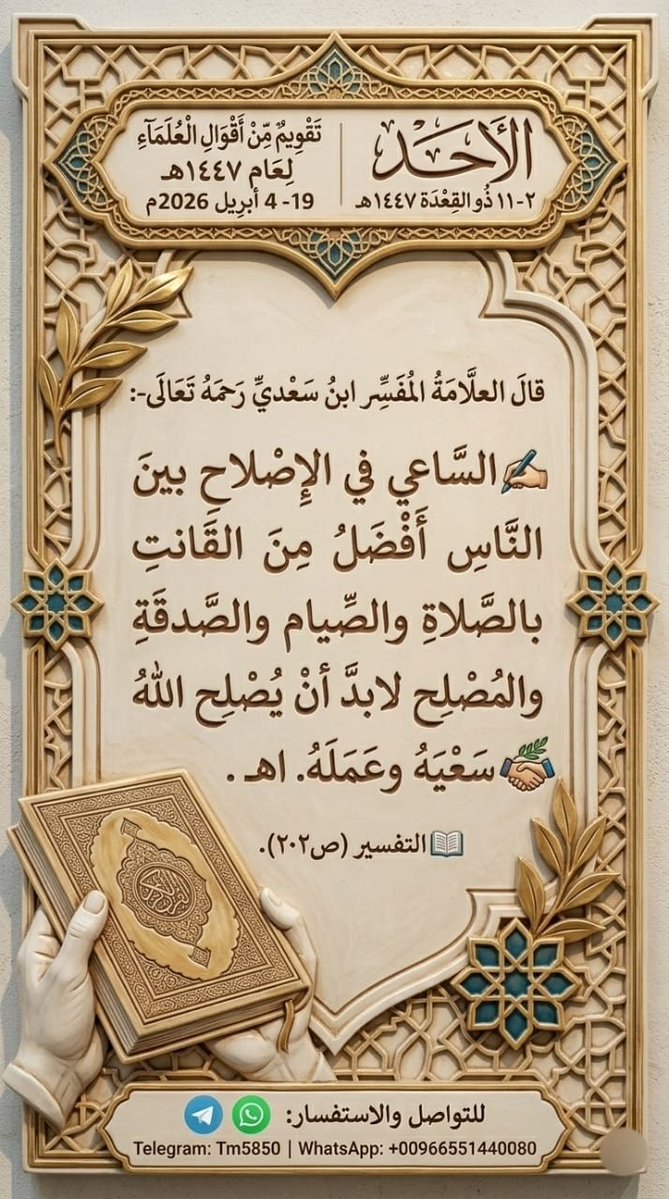 الأَحَد
٢-١١ ذُو القِعْدَة ١٤٤٧هـ
تَقْوِيمٌ مِّنْ أَقْوَالِ الْعُلَمَآءِ
لِعَام ١٤٤٧هـ
19- 4 أبرِيل 2026م
قالَ العلَّامَةُ المُفَسِّر ابنُ سَعْديِّ رَحمَهُ تَعَالَى-:
✍🏻السَّاعي في الإِصْلاحِ بينَ
النَّاسِ أَفْضَلُ مِنَ القَانتِ
بالصَّلاةِ والصِّيام والصَّدقَةِ
والمُصْلِح لابدَّ أنْ يُصْلِح اللهُ
سَعْيَهُ وعَمَلَهُ. اهـ .
📖التفسير (ص٢٠٢).
للتواصل والاستفسار:
Telegram: Tm5850 | WhatsApp: +00966551440080